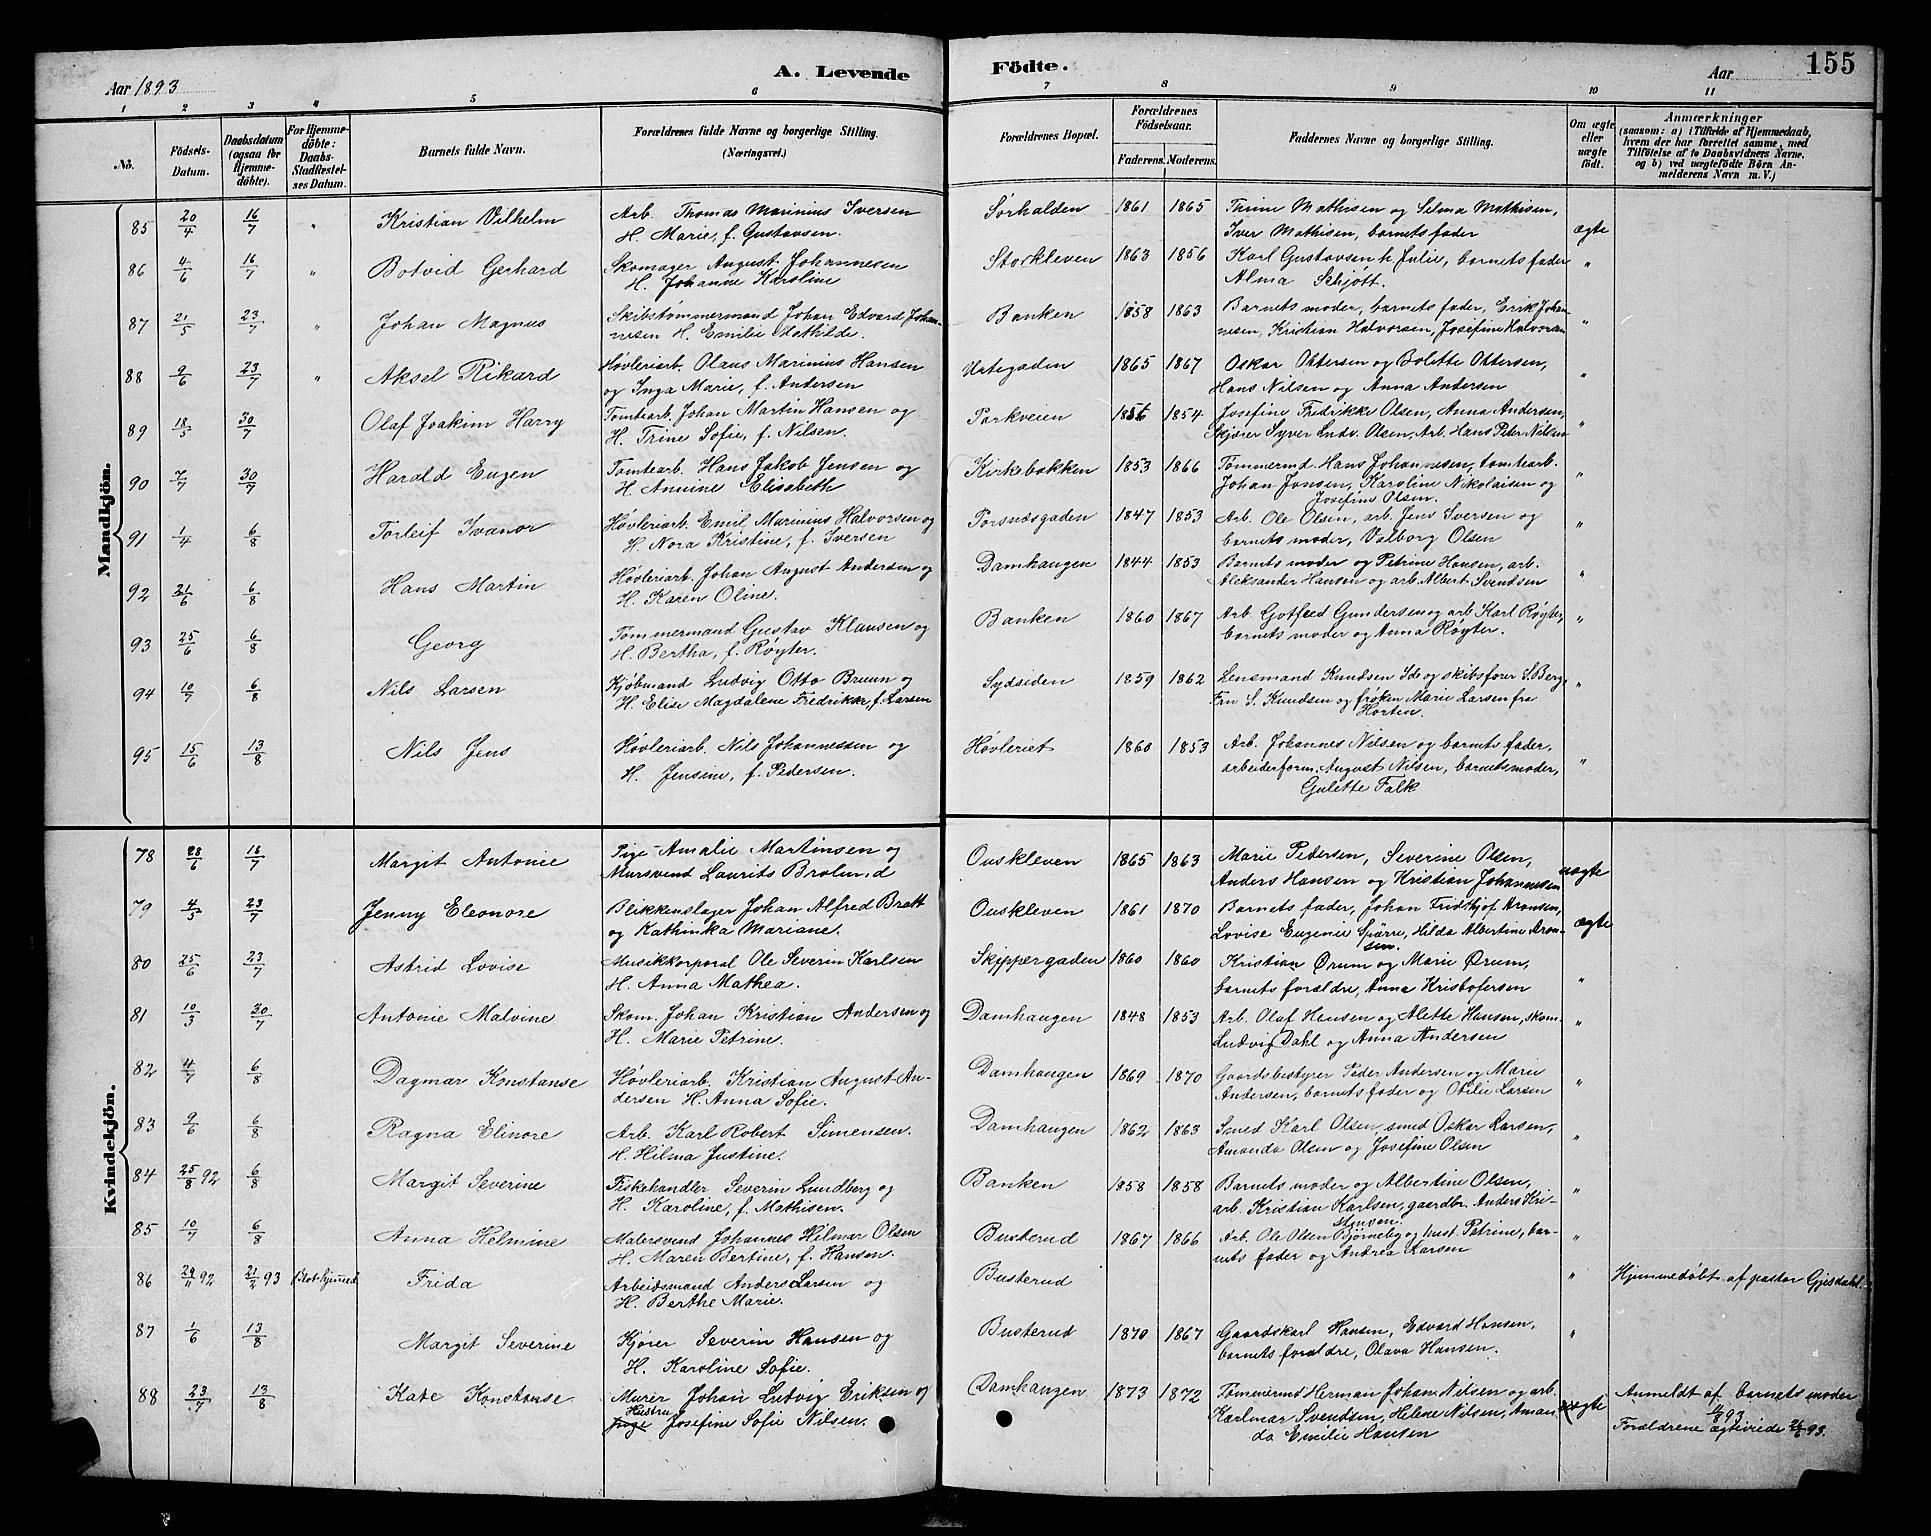 Aar 1893
A. Levende
Födte.
Aar
155
1 2 3 4 5 6 7 8 9 10 11
No.
Födsels-Datum.
Daabsdatum (ogsaa for Hjemme-döbte).
For Hjemme-döbte: Daabs-Stadfæstel-ses Datum.
Barnets fulde Navn.
Forældrenes fulde Navne og borgerlige Stilling. (Næringsvei.)
Forældrenes Bopæl.
Forældrenes Födselsaar.
Faderens. Moderens.
Faddernes Navne og borgerlige Stilling.
Om ægte eller uægte födt.
Anmærkninger
(saasom: a) i Tilfælde af Hjemmedaab,
hvem der har forrettet samme, med
Tilföielse af to Daabsvidners Navne,
og b) ved uægtefödte Börn An-
melderens Navn m. V.)
Mandkjön.
85 20/4 16/7 " Kristian Vilhelm Arb. Thomas Marinius Iversen Sørhalden 1861 1865 Trine Mathisen og Selma Mathisen,
H. Marie, f. Gustavsen. Iver Mathisen, barnets fader ægte
86 4/6 16/7 " Botvid Gerhard Skomager August Johannesen Storkleven 1863 1856 Karl Gustavsen h. Julie, barnets fader
H. Johanne Karoline Alma Schjøtt. "
87 21/5 23/7 " Johan Magnus Skibstømmermand Johan Edvard Johan- Banken 1858 1863 Barnets moder, barnets fader, Erik Johan
nesen H. Emilie Mathilde. nesen, Kristian Halvorsen, Josefine Halvorsen "
88 9/6 23/7 " Aksel Rikard Høvleriarb. Olaus Marinius Hansen Urtegaden 1865 1867 Oskar Ottersen og Bolette Ottersen,
og Inga Marie, f. Andersen Hans Nilsen og Anna Andersen "
89 18/5 30/7 Olaf Joakim Harry Tomtearb. Johan Martin Hansen og Parkveien 1856 1854 Josefine Fredrikke Olsen, Anna Andersen,
H. Trine Sofie, f. Nilsen. Skjører Syver Ludv. Olsen, Arb. Hans Peter Nilsen "
90 7/7 30/7 Harald Eugen Tomtearb. Hans Jakob Jensen og Kirkebakken 1853 1866 Tømmermd. Hans Johannesen, tomtearb.
H. Annine Elisabeth Johan Jonsen, Karoline Nikolaisen og "
Josefine Olsen.
91 1/4 6/8 Torleif Ivanor Høvleriarb. Emil Marinius Halvorsen og Torsnæsgaden 1847 1853 Arb. Ole Olsen, arb. Jens Iversen og
H. Nora Kristine, f. Iversen barnets moder, Valborg Olsen "
92 21/6 6/8 Hans Martin Høvleriarb. Johan August Andersen og Damhaugen 1844 1853 Barnets moder og Petrine Hansen, arb.
H. Karen Oline. Aleksander Hansen og arb. Albert Svendsen "
93 25/6 6/8 Georg Tømmermand Gustav Klausen og Banken 1860 1867 Arb. Gotfred Gundersen og arb. Karl Røyter,
H. Bertha, f. Røyter. barnets moder og Anna Røyter. "
94 10/7 6/8 Nils Larsen Kjøbmand Ludvig Otto Bruun og Sydsiden 1859 1862 Lensmand Knudsen Ide og skibsfører S. Berg,
H. Elise Magdalene Fredrikke, f. Larsen Fru S. Knudsen og frøken Marie Larsen fra "
Horten.
95 15/6 13/8 Nils Jens Høvleriarb. Nils Johannessen og Høvleriet 1860 1853 Arb. Johannes Nilsen og barnets fader,
H. Jensine, f. Pedersen. arbeiderform. August Nilsen, barnets moder, "
Gulette Falk
Kvindekjön.
78 28/6 16/7 Margit Antonie Pige Amalie Martinsen og Ouskleven 1865 1863 Marie Pedersen, Severine Olsen,
Mursvend Laurits Brolund Anders Hansen og Kristian Johannesen uægte
79 4/5 23/7 Jenny Eleonore Blikkenslager Johan Alfred Bratt Ouskleven 1861 1870 Barnets fader, Johan Fridthjof Aronsen,
og Kathinka Mariane. Lovise Eugenie Spärre, Hilda Albertine Aron- ægte
sen.
80 25/6 23/7 Astrid Lovise Musikkorporal Ole Severin Karlsen Skippergaden 1860 1860 Kristian Ørum og Marie Ørum,
H. Anna Mathea. barnets forældre, Anna Kristofersen "
81 10/3 30/7 Antonie Malvine Skom. Johan Kristian Andersen og Damhaugen 1848 1853 Arb. Olaf Hansen og Alette Hansen, skom.
H. Marie Petrine. Ludvig Dahl og Anna Andersen "
82 4/7 6/8 Dagmar Konstanse Høvleriarb. Kristian August An- Damhaugen 1869 1870 Gaardsbestyrer Peder Andersen og Marie
dersen H. Anna Sofie. Andersen, barnets fader og Otilie Larsen "
83 9/6 6/8 Ragna Elinore Arb. Karl Robert Simensen. Damhaugen 1862 1863 Smed Karl Olsen, smed Oskar Larsen,
H. Hilma Justine. Amanda Olsen og Josefine Olsen "
84 25/8 92 6/8 Margit Severine Fiskehandler Severin Lundberg og Banken 1858 1858 Barnets moder og Albertine Olsen,
H. Karoline, f. Mathisen. arb. Kristian Karlsen, gaardbr. Anders Kri- "
stensen.
85 10/7 6/8 Anna Helmine Malersvend Johannes Hilmar Olsen Busterud 1867 1866 Arb. Ole Olsen Bjørneby og hust. Petrine, bar-
H. Maren Bertine, f. Hansen. nets fader og Andrea Larsen "
86 29/11 92 21/2 93 Blot hjemmed. Frida Arbeidsmand Anders Larsen og Busterud " Hjemmedøbt af pastor Gjesdahl.
H. Berthe Marie.
87 1/6 13/8 Margit Severine Kjører Severin Hansen og Busterud 1870 1867 Gaardskarl Hansen, Edvard Hansen,
H. Karoline Sofie. barnets forældre, Olava Hansen. "
88 23/7 13/8 Kate Konstanse Murer Johan Ludvig Eriksen og Damhaugen 1873 1872 Tømmermd Herman Johan Nilsen og arb. Anmeldt af barnets moder
Hustru
Pige Josefine Sofie Nilsen. Karlmar Svendsen, Helene Nilsen, Aman uægte
da Emilie Hansen Forældrene ægteviede 26/6 93.